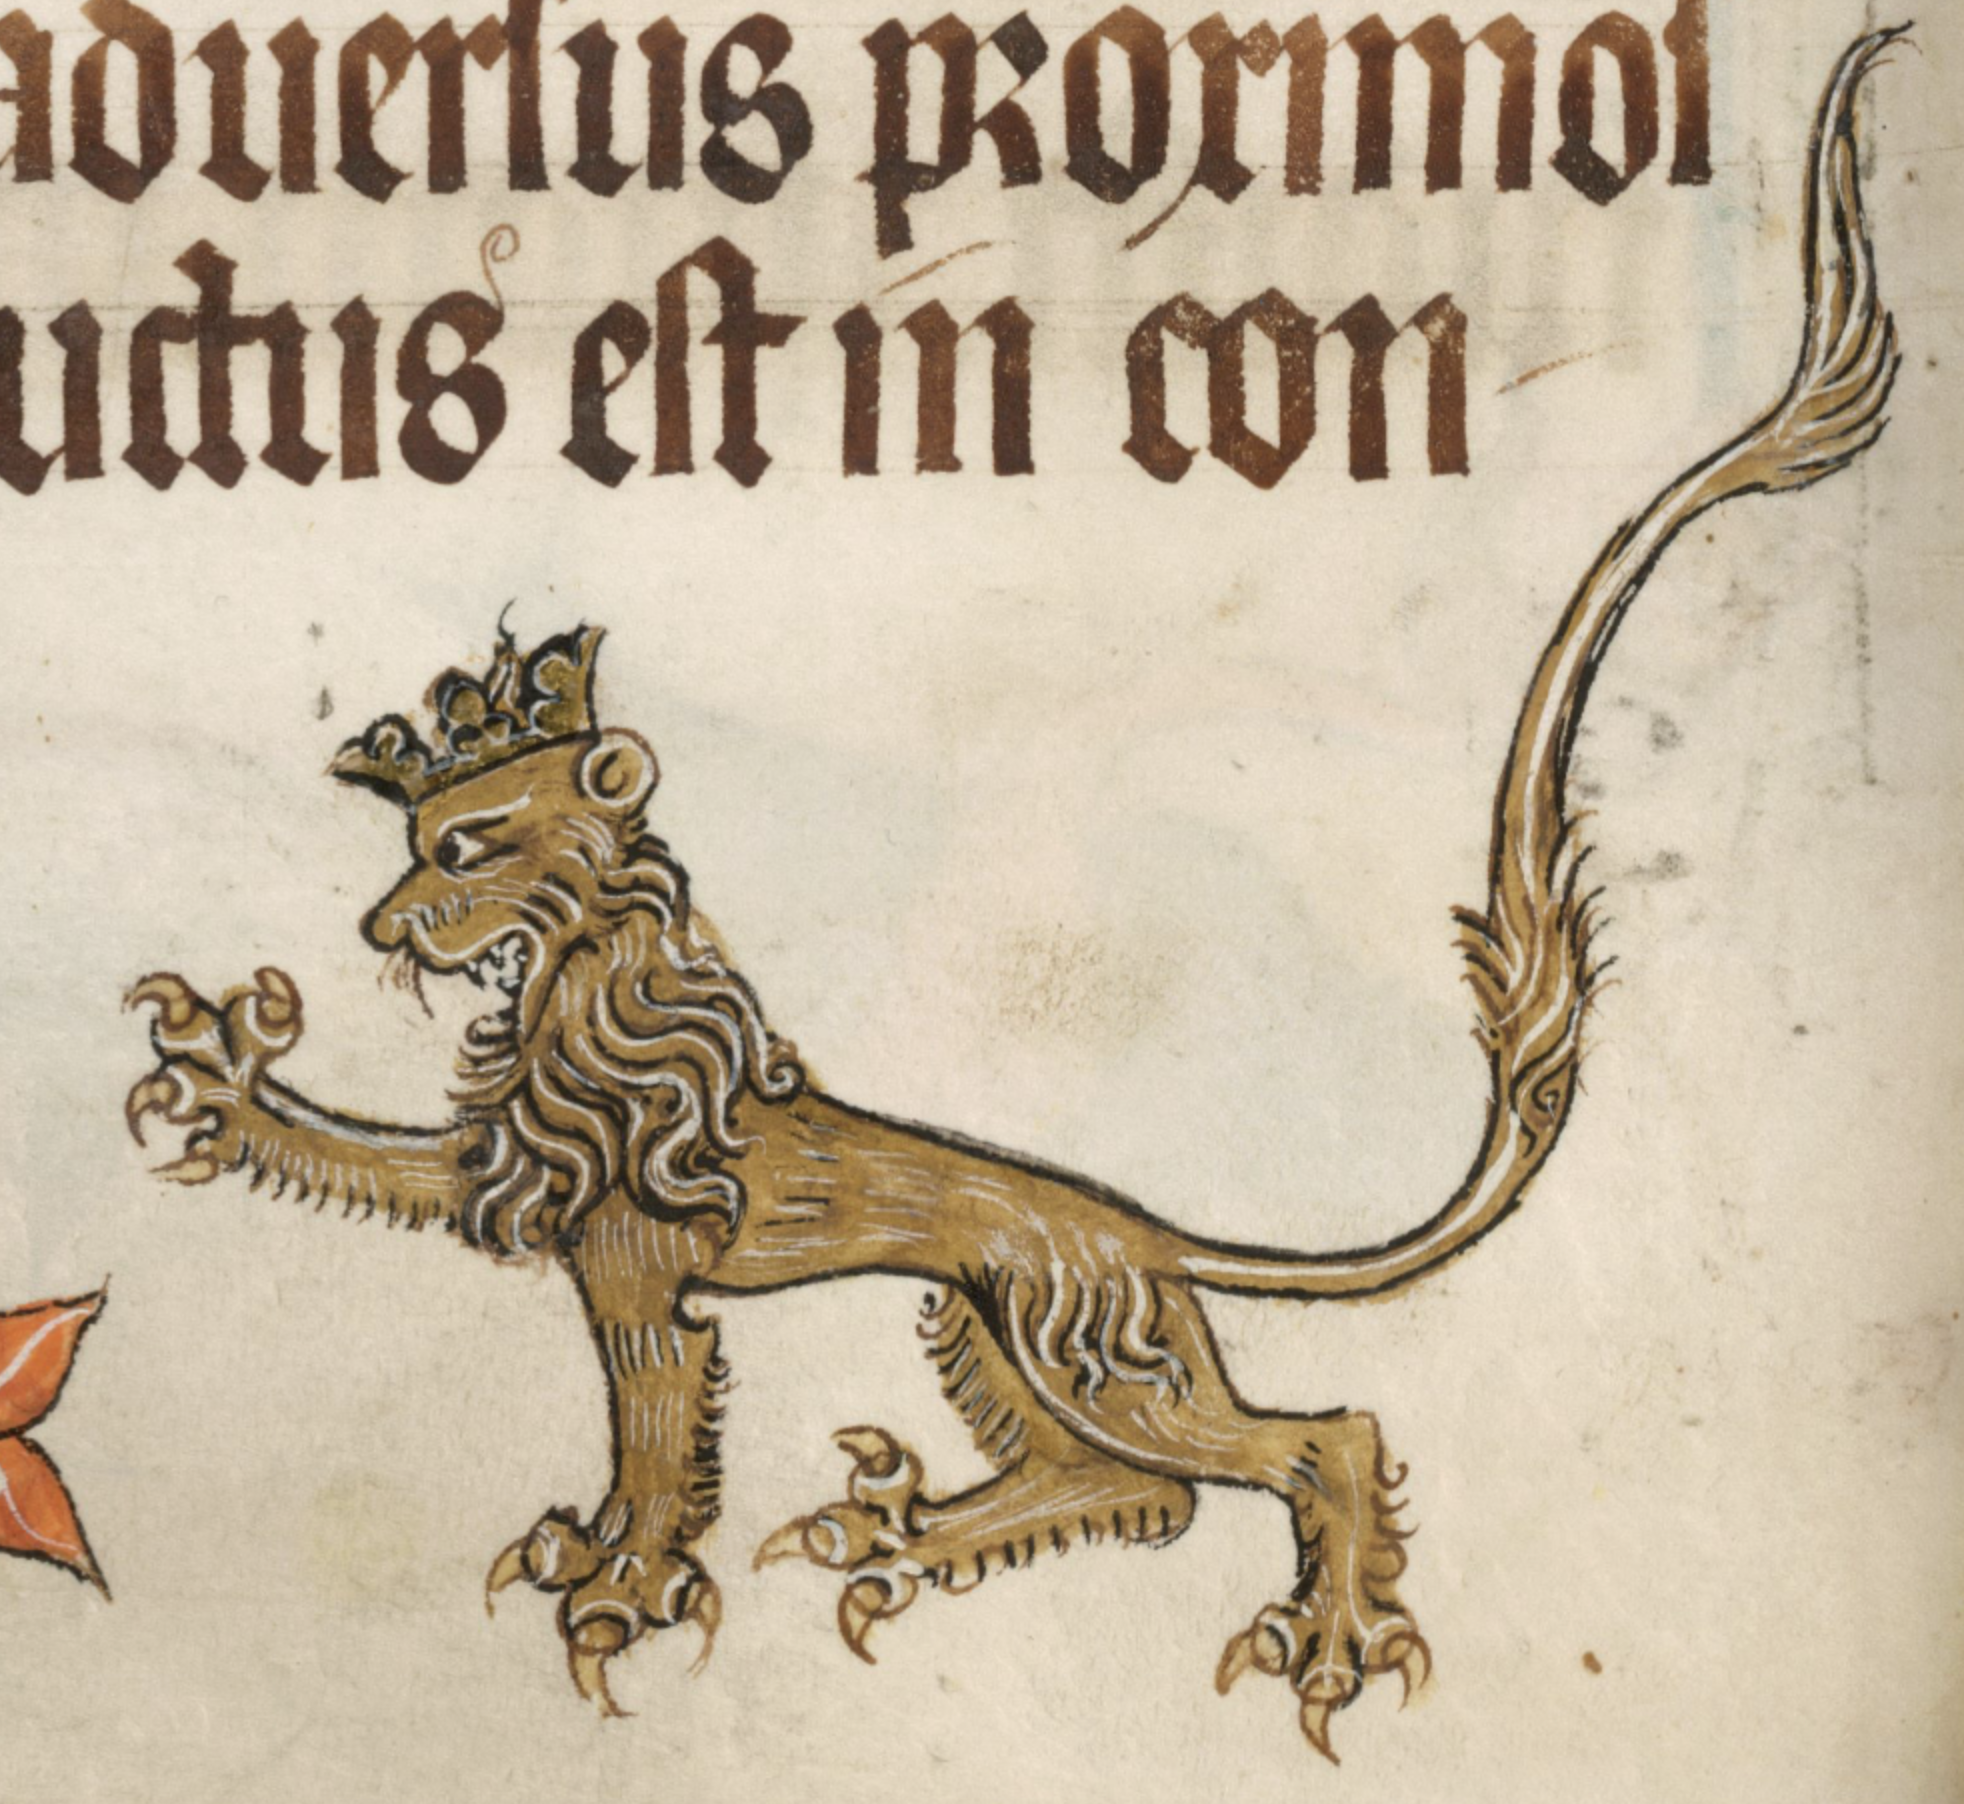 aduersus proximos
uctus est in con